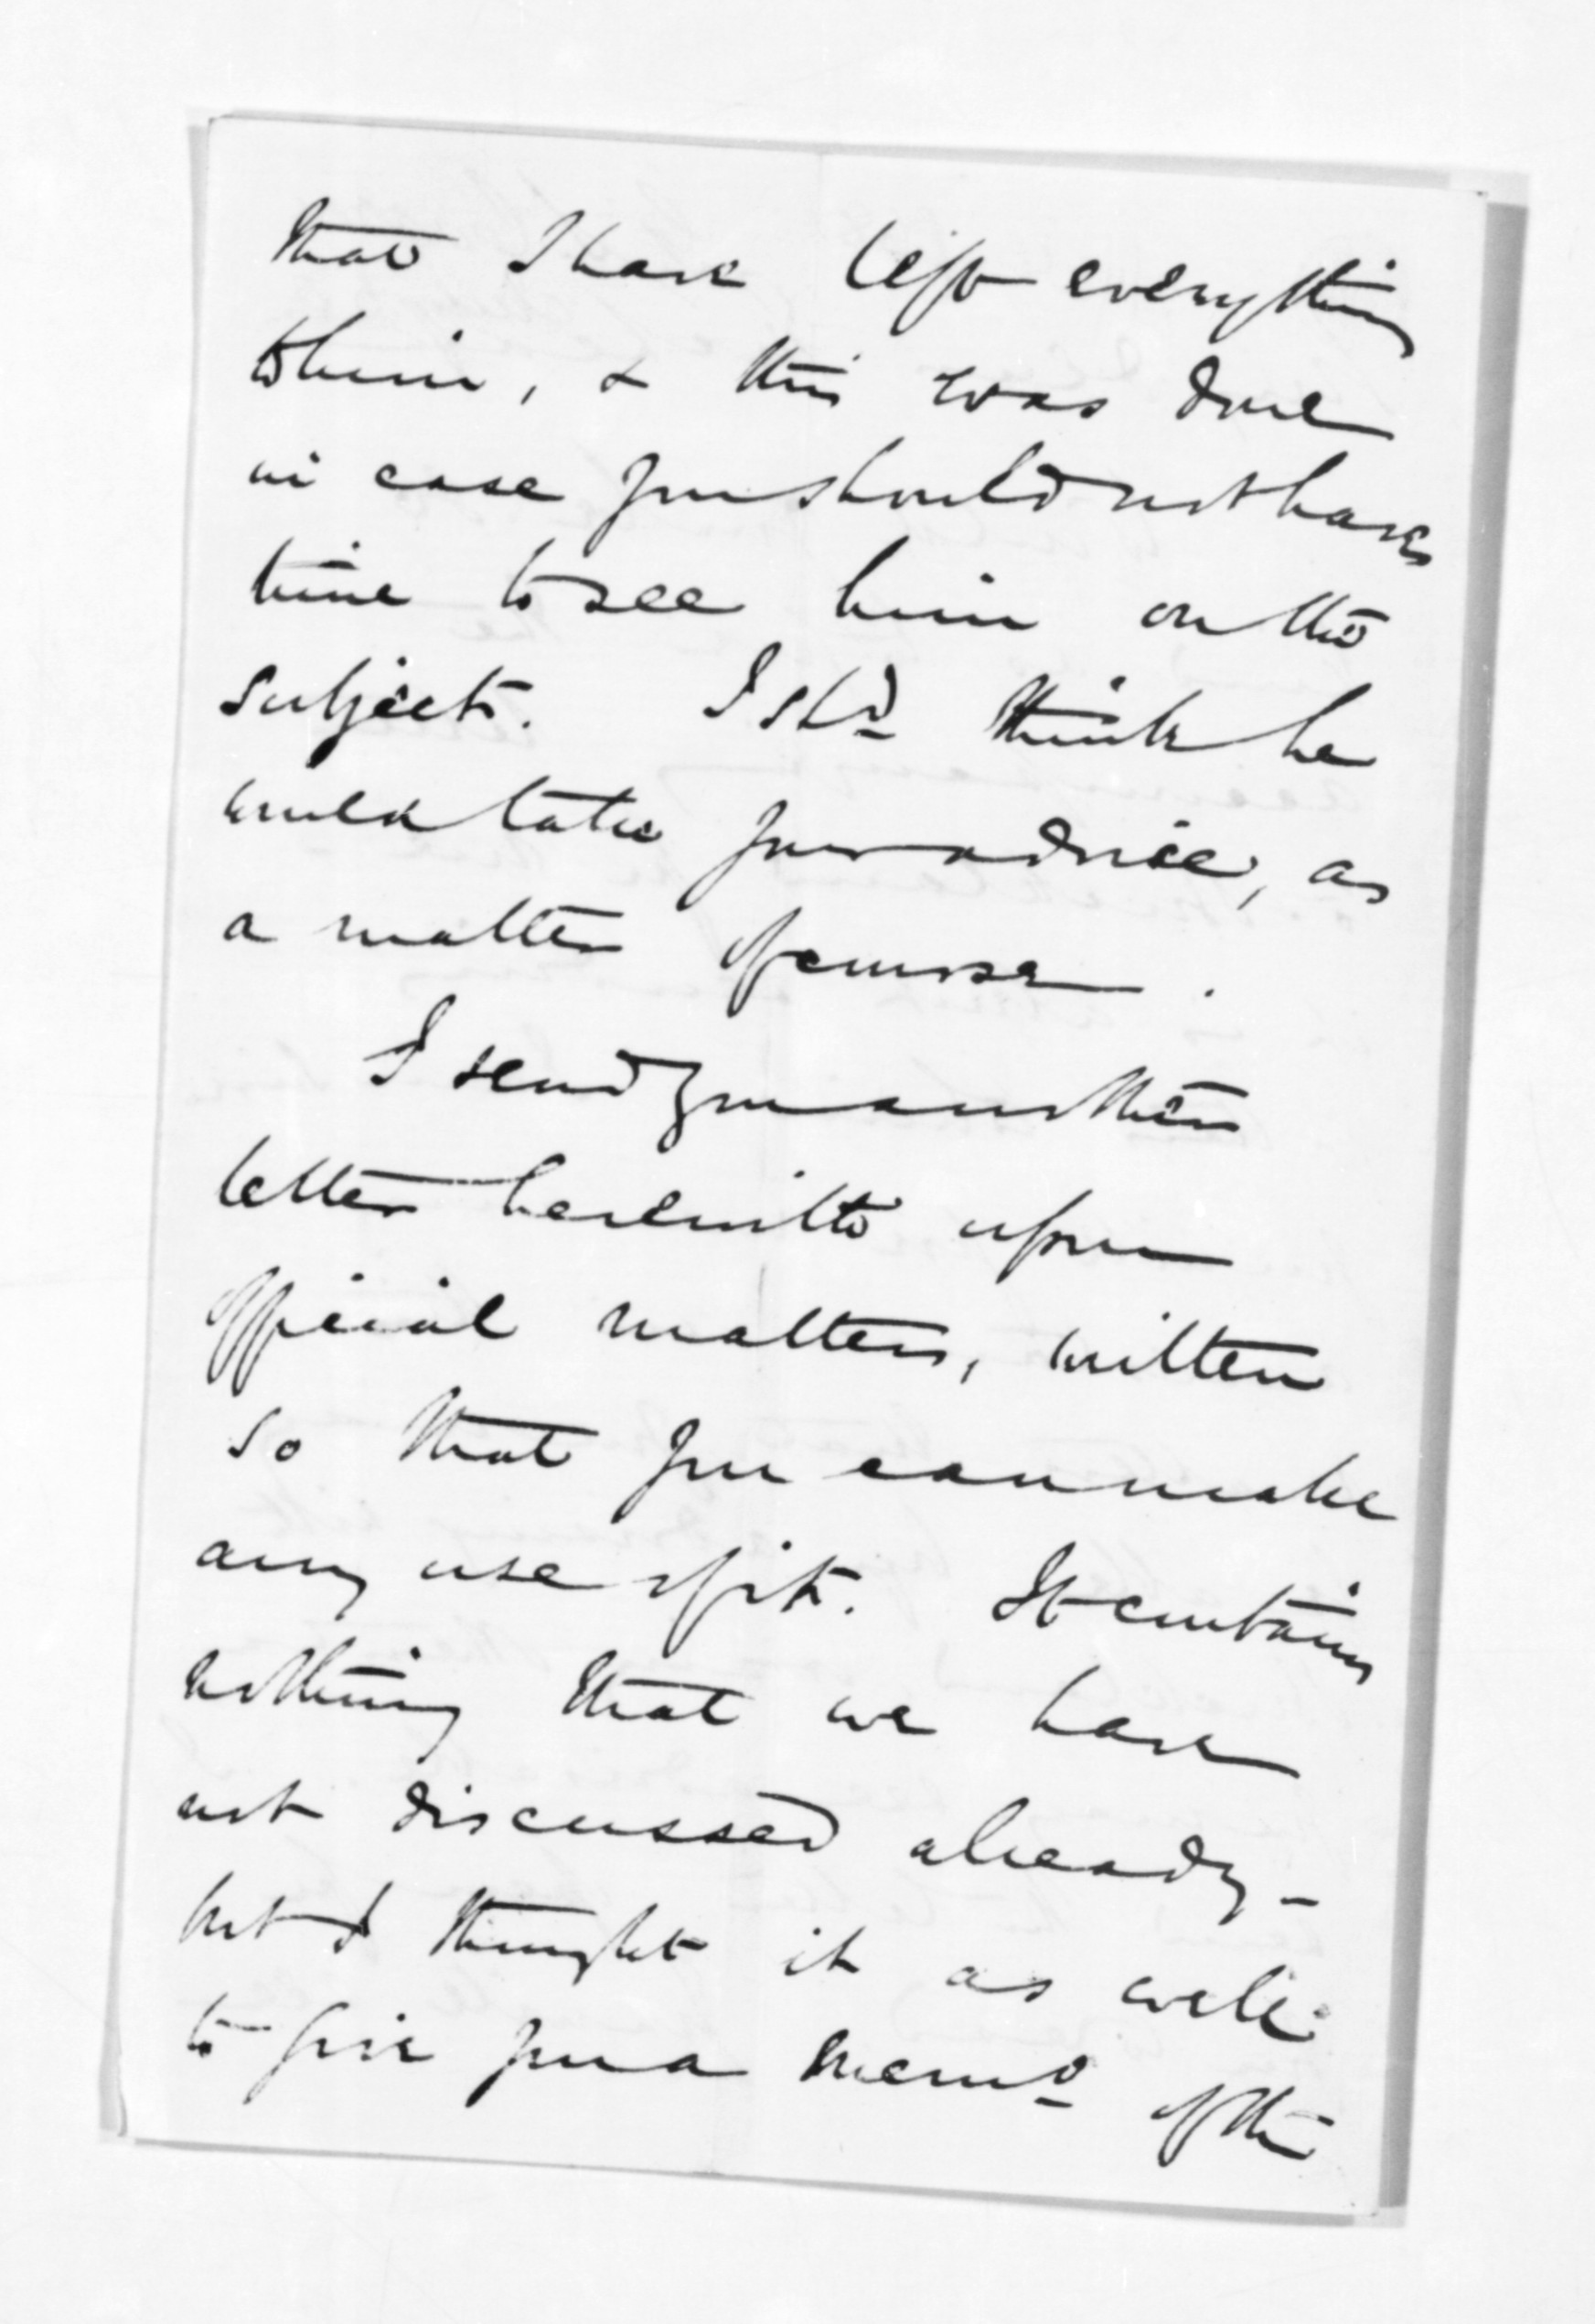 that I have left everything
to him, & this was done
in case you should not have
time to see him on the
subject. I shd think he
would take your advice, as
a matter of course.
I send you another
letter herewith upon
official matters, written
so that you can make
any use of it. It contains
nothing that we have
not discussed already -
but I thought it as well
to give you a memo of the